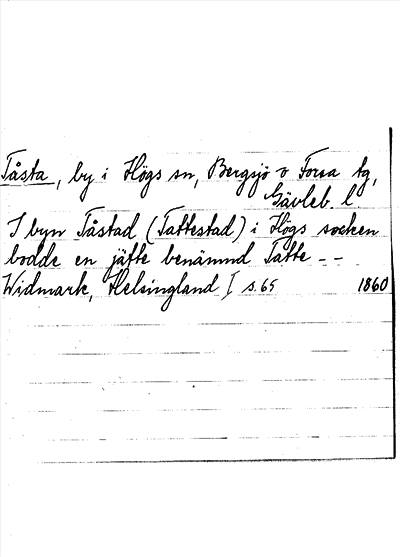 Tåsta, by i Högs sn, Bergsjö o Forsa tg,
Gävleb. l.
I byn Tåstad (Tattestad) i Högs socken
bodde en jätte benämnd Tatte - -
Widmark, Helsingland I s. 65 1860